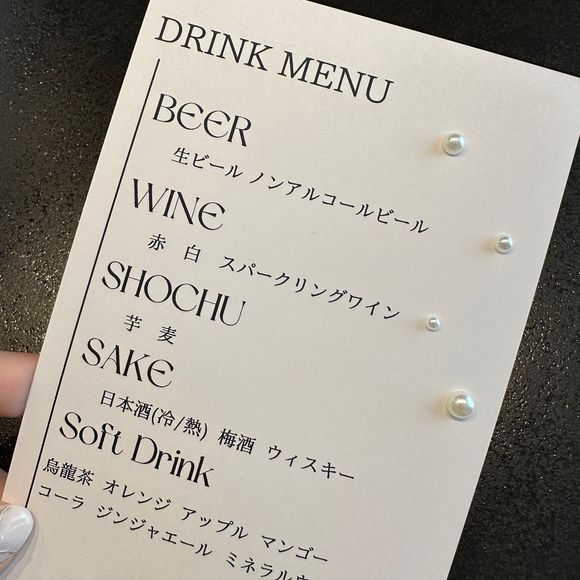 DRINK MENU
BEER
生ビール ノンアルコールビール
WINE
赤 白 スパークリングワイン
SHOCHU
芋 麦
SAKE
日本酒(冷/熱) 梅酒 ウィスキー
Soft Drink
烏龍茶 オレンジ アップル マンゴー
コーラ ジンジャエール ミネラル